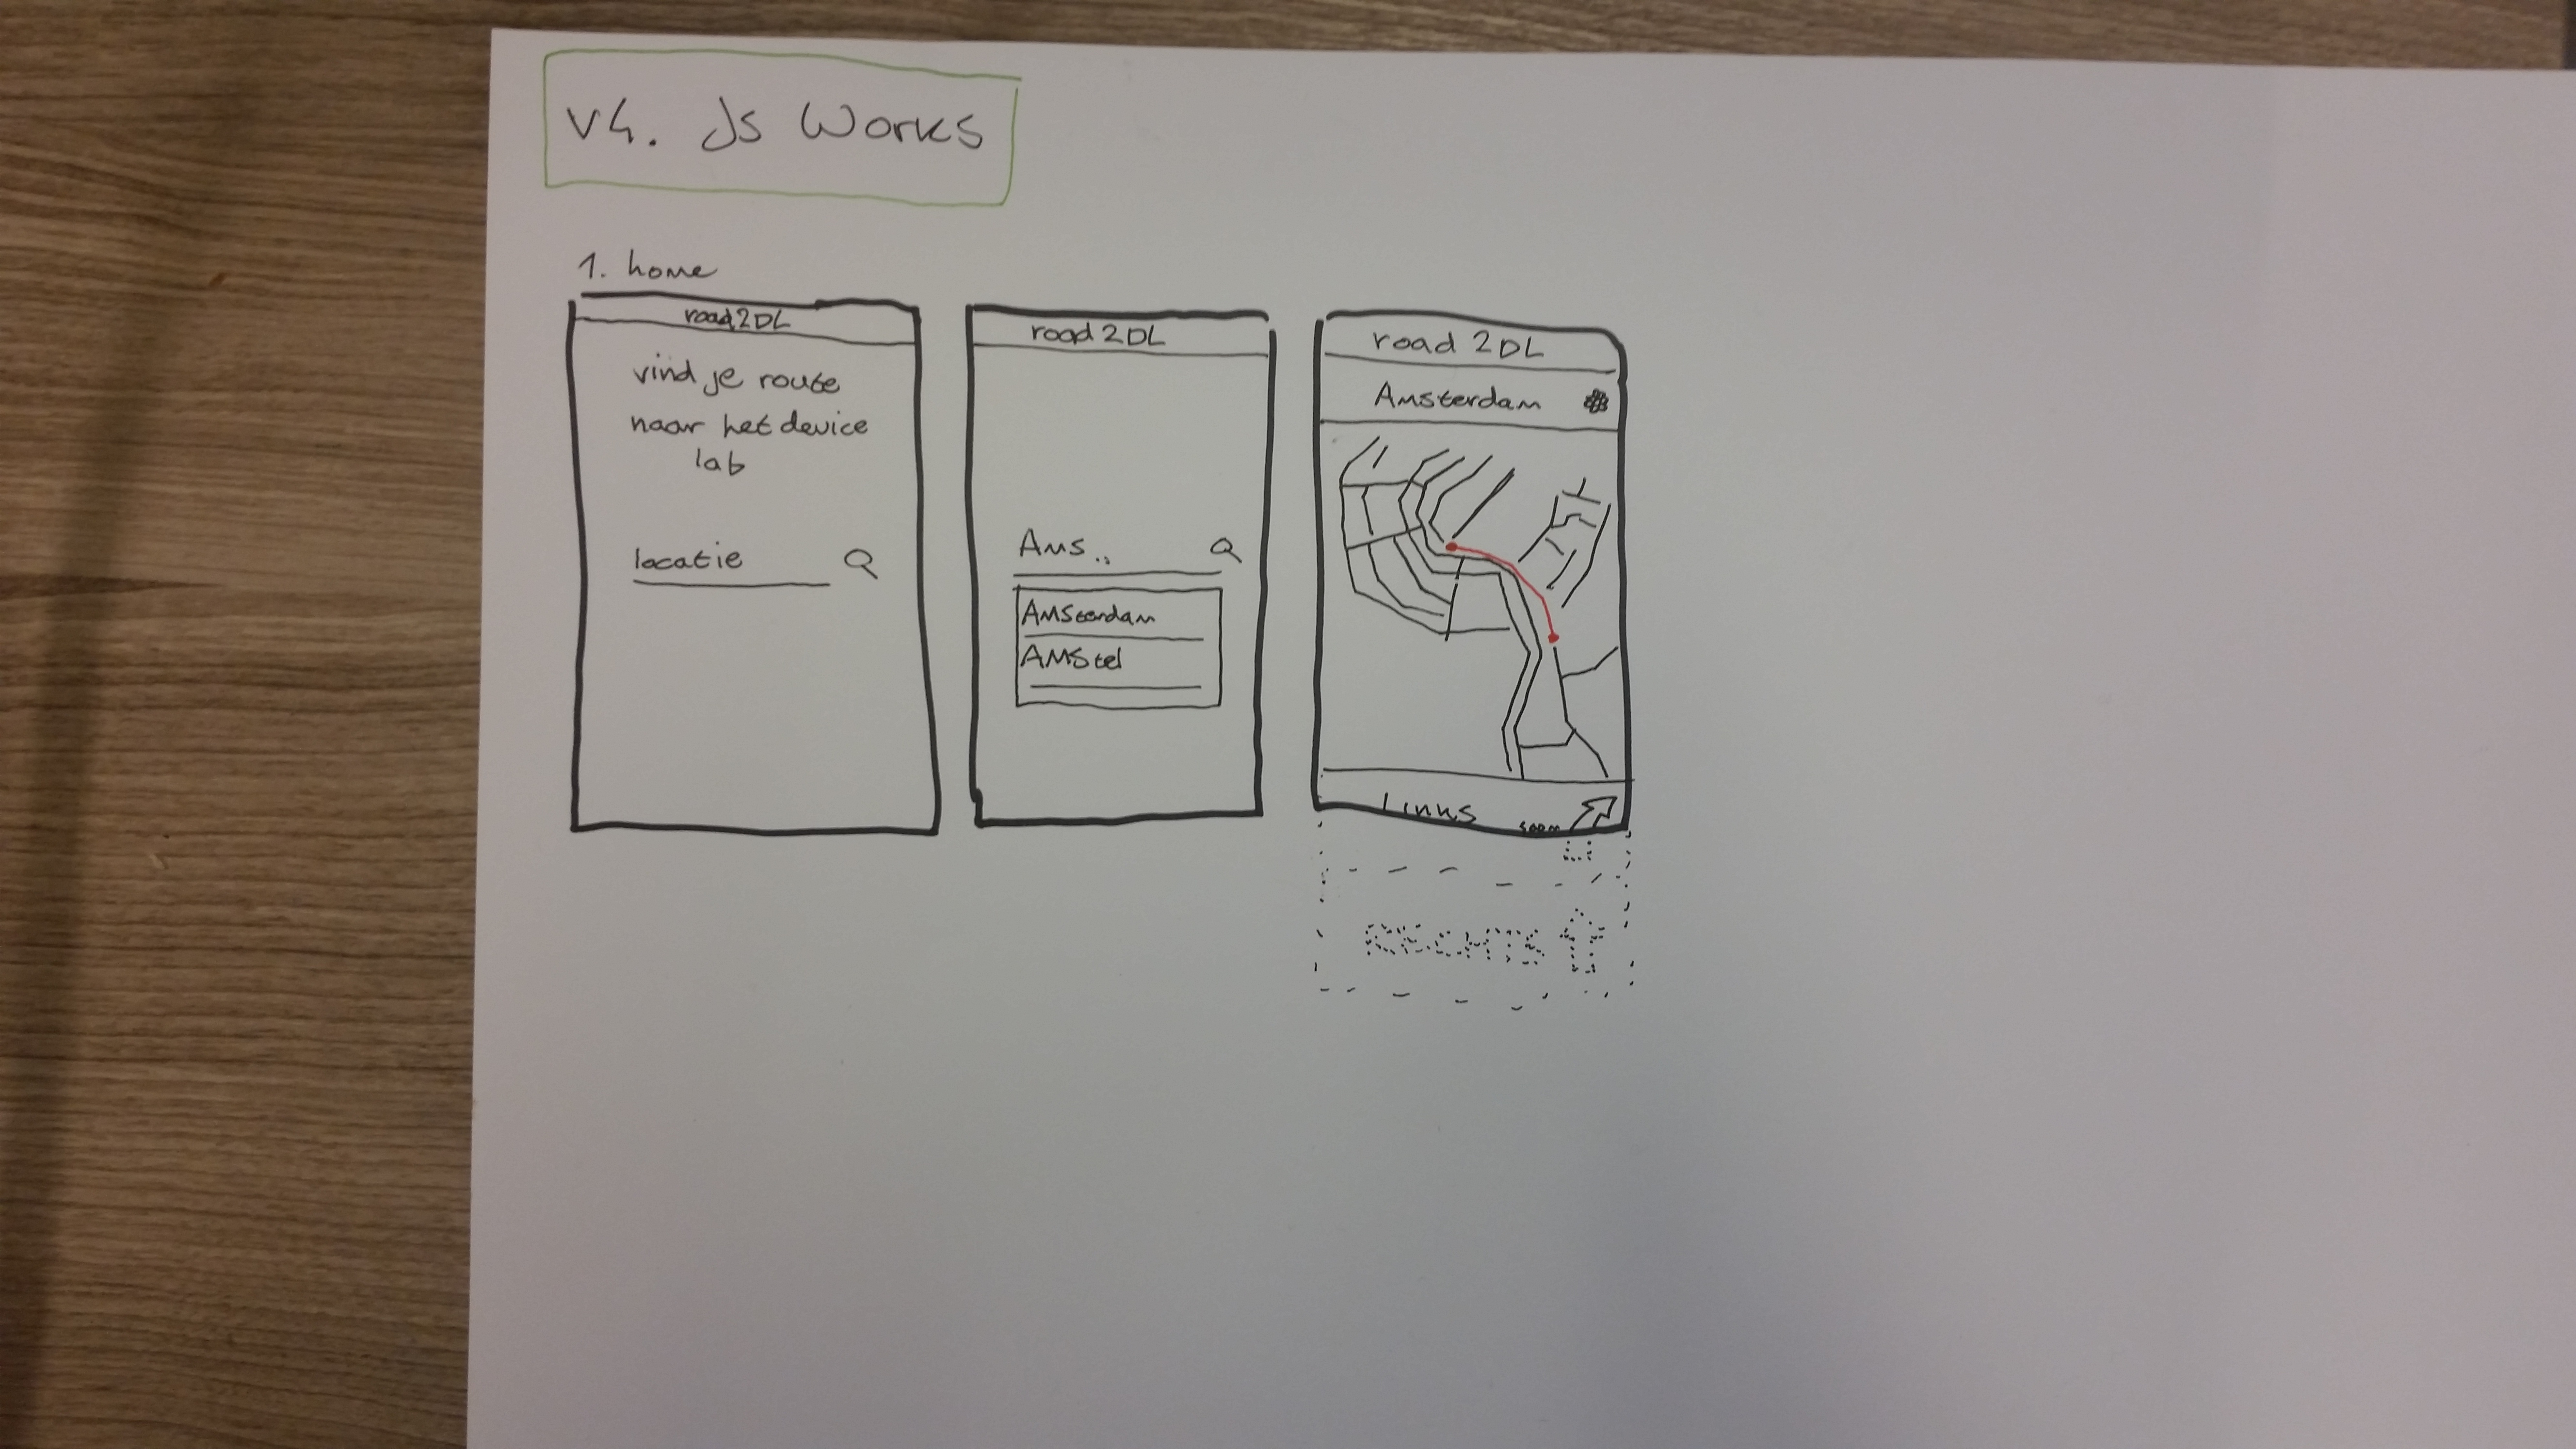 v4. Js Works
1. home
road2DL
vind je route
naar het device
lab
locatie
road 2DL
Ams..
Amsterdam
AMStel
road 2DL
Amsterdam